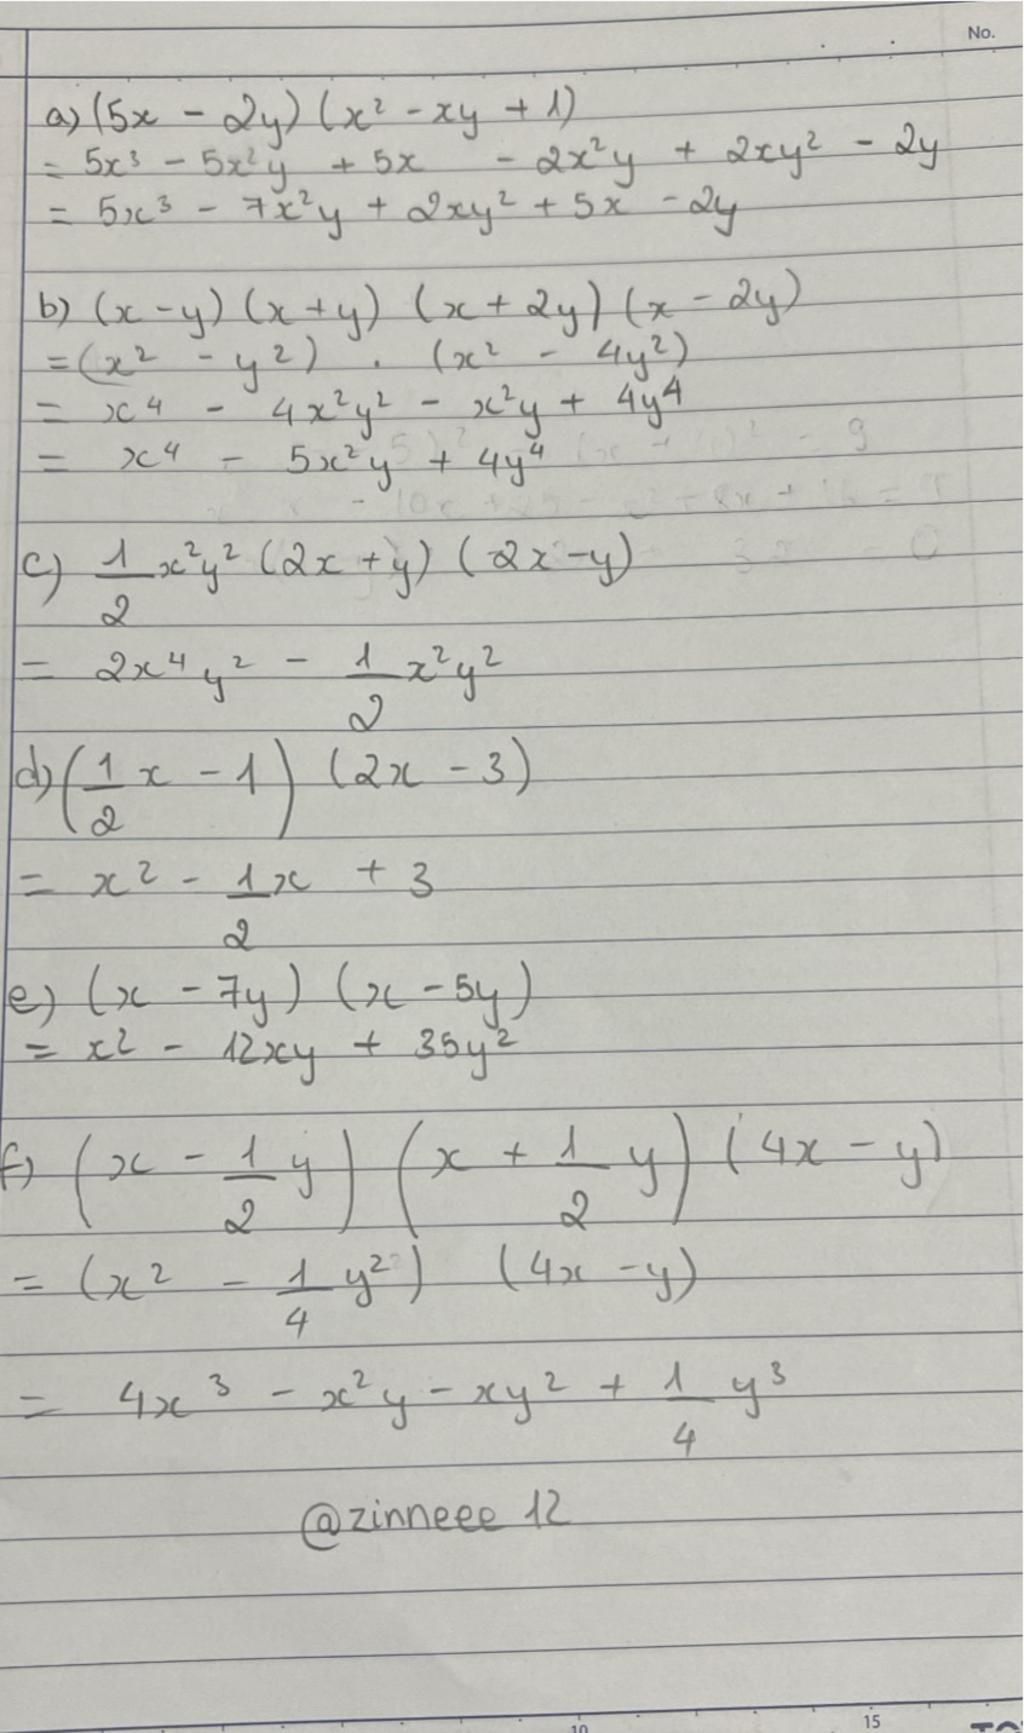 No.
a) (5x - 2y) (x² - xy + 1)
= 5x³ - 5x²y + 5x - 2x²y + 2xy² - 2y
= 5x³ - 7x²y + 2xy² + 5x - 2y
b) (x - y) (x + y) (x + 2y) (x - 2y)
= (x² - y²) . (x² - 4y²)
= x⁴ - 4x²y² - x²y + 4y⁴
= x⁴ - 5x²y + 4y⁴
c) 1/2 x²y² (2x + y) (2x - y)
= 2x⁴y² - 1/2 x²y²
d) (1/2 x - 1) (2x - 3)
= x² - 1/2 x + 3
e) (x - 7y) (x - 5y)
= x² - 12xy + 35y²
f) (x - 1/2 y) (x + 1/2 y) (4x - y)
= (x² - 1/4 y²) (4x - y)
= 4x³ - x²y - xy² + 1/4 y³
@zinneee 12
10 15